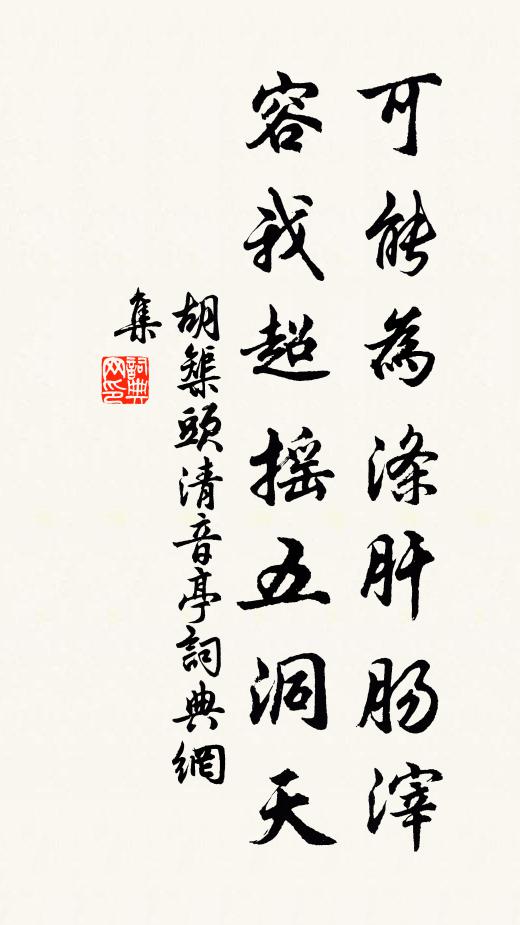 可能為滌肝腸滓
容我超搖五洞天
胡榘頭清音亭詞典網
集
詞典
网印